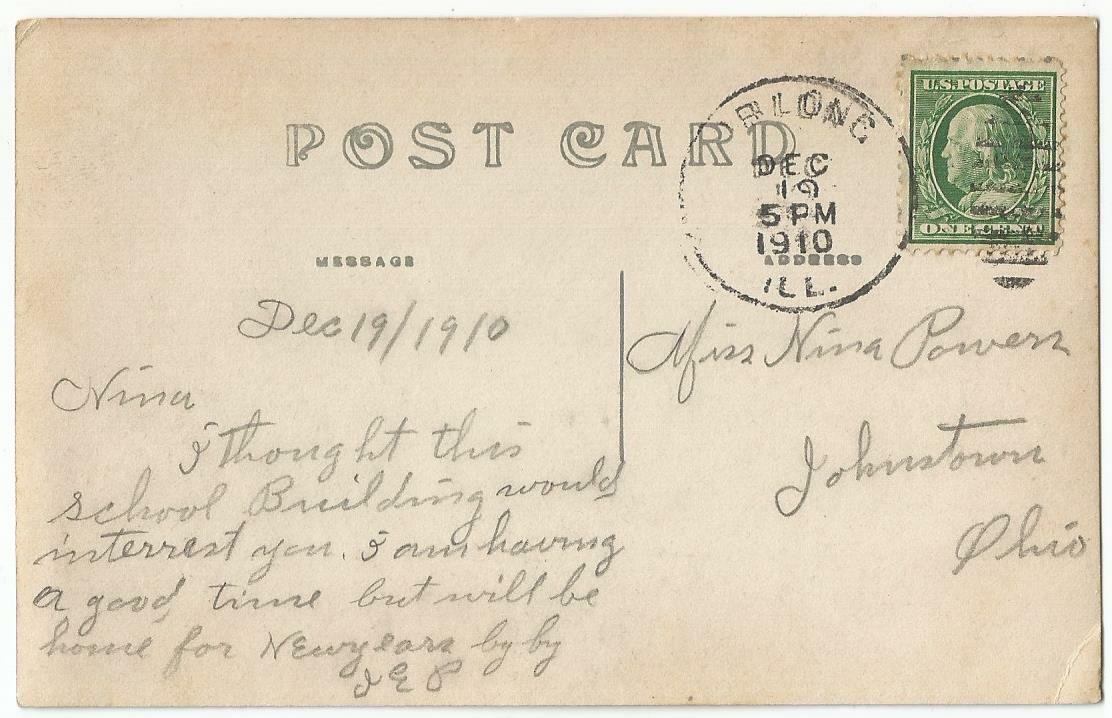 POST CARD
U.S. POSTAGE
ONE CENT
RLONG
DEC
19
5 PM
1910
ILL.
MESSAGE
ADDRESS
Dec 19/1910
Nina
I thought this
school Building would
interrest you. I am having
a good time but will be
home for Newyears by by
I E P
Miss Nina Powers
Johnstown
Ohio